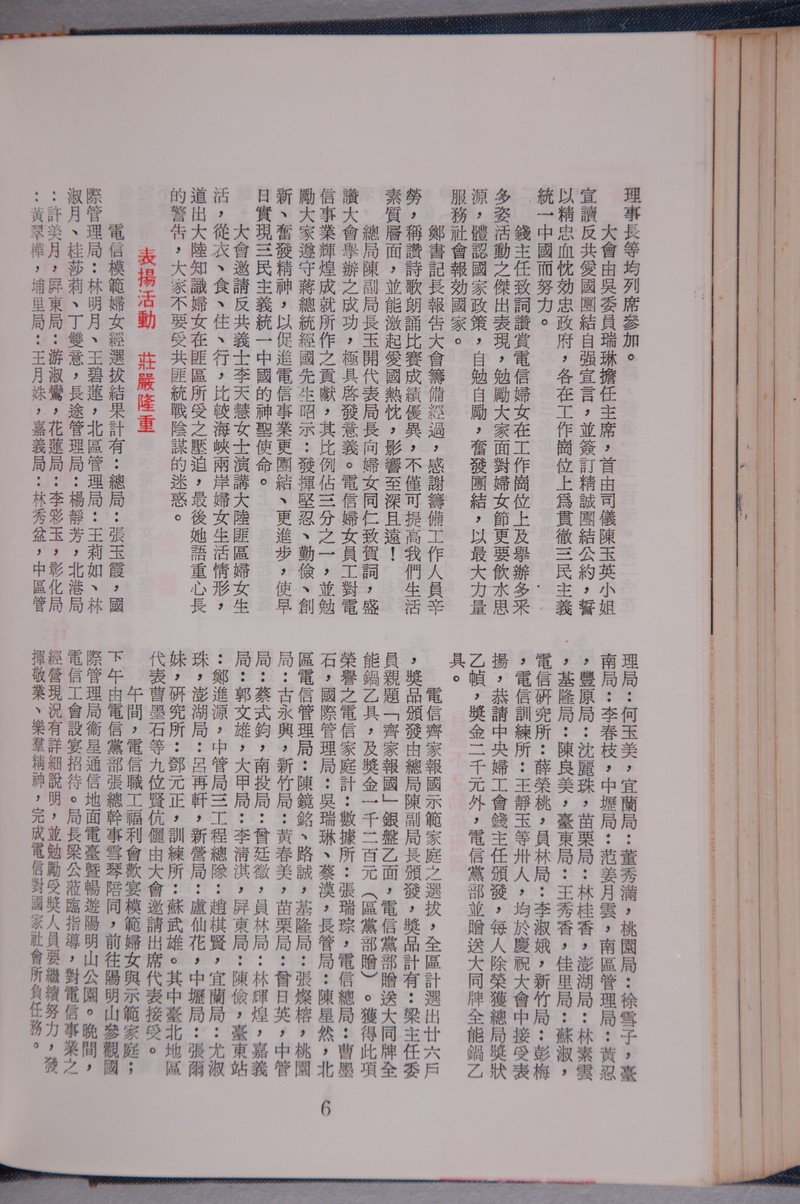 理事長等均列席參加。
大會由吳委員瑞琳擔任主席，首由司儀陳玉英小姐
宣讀反共愛國團結自强宣言，並簽訂精誠團結公約，誓
以精忠血忱効忠政府，各在工作崗位上爲貫徹三民主義
統一中國而努力。
錢主任致詞讚賞電信婦女在工作崗位上及舉辦多采
多姿活動之傑出表現，勉勵大家面對婦女節更要飲水思
源，體認國家政策，自勉自勵，奮發團結，以最大力量
服務社會報効國家。
鄭書記長報告大會籌備經過，感謝籌備工作人員辛
勞，稱讚詩歌朗誦比賽成績優異，不僅可提高我們生活
素質層面，並能激起愛國熱忱，影響至深且遠！
總局陳副局長玉開代表局長向婦女同仁致賀詞，盛
讚大會舉辦之成功，極具啓發意義。電信婦女員工對電
信事業輝煌成就所作之貢獻，其比例佔三分之一，並勉
勵大家遵守蔣總統經國先生昭示：發揮堅忍、勤儉、創
新、奮發精神，以促進電信事業更團結、更進步，使早
日實現三民主義統一中國的神聖使命。
大會邀請反共義士李天慧女士演講大陸匪區婦女生
活，從衣、食、住、行，比較海峽兩岸婦女生活情形，
道出大陸知識婦女在匪區所受之壓迫，最後她語重心長
的警告，大家不要受共匪統戰陰謀的迷惑。
表揚活動 莊嚴隆重
電信模範婦女經選拔結果計有：總局：張玉霞，國
際管理局：林明月、王碧蓮，北區管理局：王莉如、林
淑月、桂莎莉、丁雙意，長途管理局：楊靜芳，北港局
：許美月，屏東局：游淑鸞，花蓮局：李彩玉，彰化局
：黃翠嬅，埔里局：王月姝，嘉義局：林秀盆，中區管
理局：何玉美，宜蘭局：董秀滿，桃園局：徐雪子，臺
南局：李春枝，中壢局：范姜月雲，南區管理局：黃忍
，豐原局：沈麗珠，苗栗局：林桂香，澎湖局：林素雲
，基隆局：陳良美，臺東局：王秀香，佳里局：蘇淑，
電信研究所：薛榮桃，員林局：李淑娥，新竹局：彭梅
，電信訓練所：王靜玉等卅人，均於慶祝大會中接受表
揚，恭請中央婦工會錢主任頒發，每人除榮獲總局獎狀
乙幀，獎金二千元外，電信黨部並贈送大同牌全能鍋乙
具。
電信齊家報國示範家庭之選拔，全區計選出廿六戶
，獎品頒發由總局陳副局長頒發，獎品計有：梁主任委
員親題「齊家報國」銀盤乙面，電信黨部贈送大同牌全
能鍋乙具，及獎金一千二百元（區黨部贈）。獲得此項
榮譽之電信家庭計：數據所：張瑞琮，電信總局：曹墨
石，國際管理局：吳瑞琳、蔡漢，長管局：陳星然，北
區電信管理局：陳鏡銘、路誠，基隆局：張燦榕，桃園
局：古永興，新竹局：黃春美，苗栗局：曾日英，中管
局：蔡式鈞，南投局：曾廷徵，員林局：林輝煌，嘉義
局：郭文雄，大甲局：李淸淇，屏東局：陳儉，臺東站
：鄭進源，中管局三工程總隊：趙棋賢，宜蘭局：尤淑
珠，澎湖局：呂再軒，新營局：盧仙花，中壢局：張爾
姝，研究所：鄧元正，訓練所：蘇武雄。其中臺北地區
代表曹墨石等九位賢伉儷由大會邀請出席代表接受。
午間，電信職工福利會歡宴模範婦女與示範家庭；
下午由電信黨部張總幹事雪琴陪同，前往陽明山參觀國
際管理局衛星通信地面電臺暨暢遊陽明山公園。晚間，
電信工會設宴招待。局長梁公蒞臨指導，對電信事業之
經營現況有詳細說明，並勉勵受獎人員要繼續努力，發
揮敬業、樂羣精神，完成電信對國家社會所負任務。
6